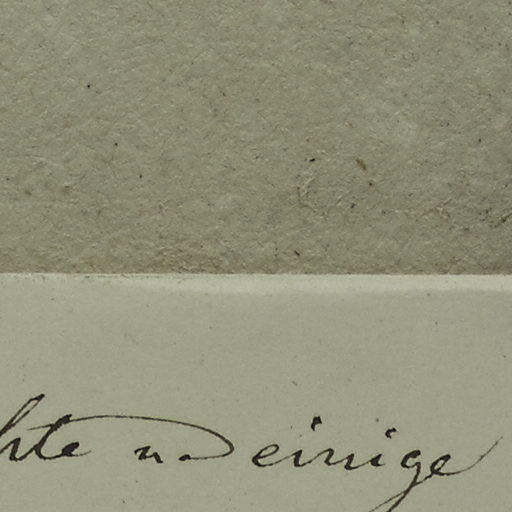 hte u. einige